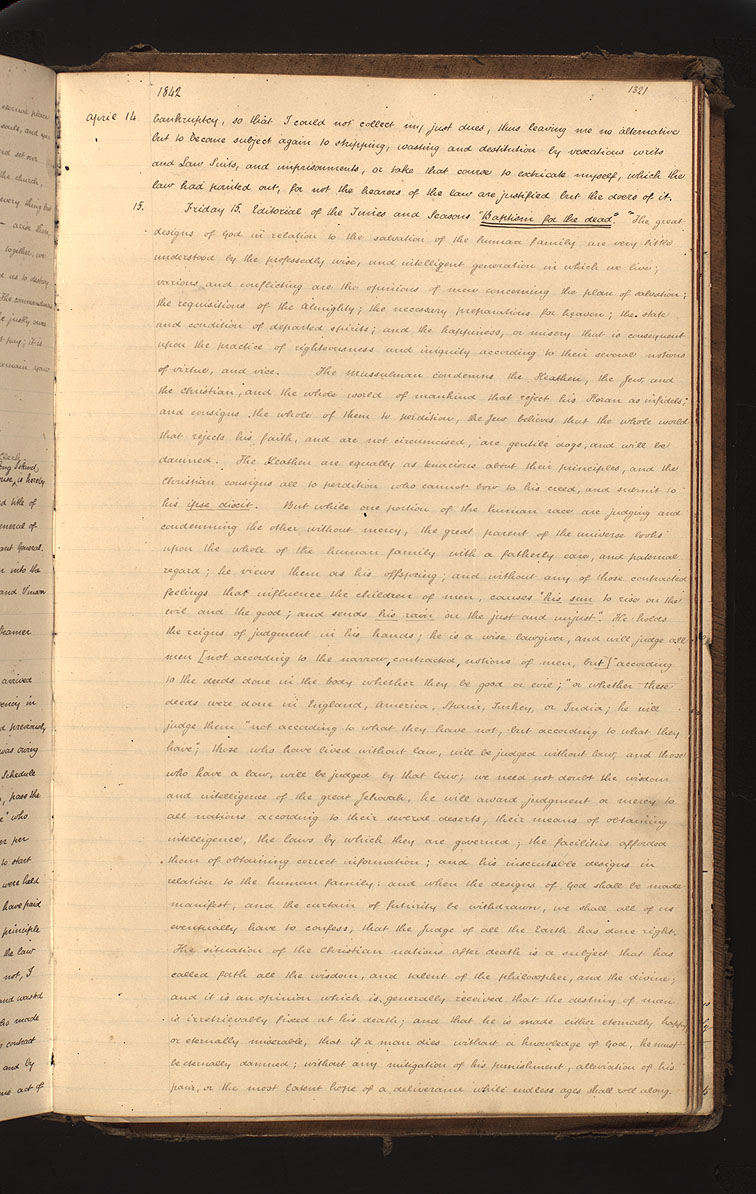 1842 1321
April 14 bankruptcy, so that I could not collect my just dues, thus leaving me no alternative
but to become subject again to stripping, wasting and destitution by vexatious writs
and Law Suits, and imprisonments, or take that course to extricate myself, which the
law had pointed out, for not the hearers of the law are justified but the doers of it.
15. Friday 15. Editorial of the Times and Seasons "Baptism for the dead." "The great
designs of God in relation to the salvation of the human family are very little
understood by the professedly wise, and intelligent generation in which we live;
various and conflicting are the opinions of men concerning the plan of salvation;
the requisitions of the Almighty; the necessary preparations for heaven; the state
and condition of departed spirits; and the happiness, or misery that is consequent
upon the practice of righteousness and iniquity according to their several notions
of virtue, and vice. The Mussulman condemns the Heathen, the Jew, and
the Christian, and the whole world of mankind that reject his Koran as infidels;
and consigns the whole of them to perdition, the Jew believes that the whole world
that rejects his faith, and are not circumcised, are gentile dogs, and will be
damned. The Heathen are equally as tenacious about their principles, and the
Christian consigns all to perdition who cannot bow to his creed, and submit to
his ipse dixit. But while one portion of the human race are judging and
condemning the other without mercy, the great parent of the universe looks
upon the whole of the human family with a fatherly care, and paternal
regard; he views them as his offspring; and without any of those contracted
feelings that influence the children of men, causes "his sun to rise on the
evil and the good; and sends his rain on the just and unjust". He holds
the reigns of judgment in his hands; he is a wise lawgiver, and will judge all
men [not according to the narrow, contracted, notions of men, but] "according
to the deeds done in the body whether they be good or evil;" or whether these
deeds were done in England, America, Spain, Turkey, or India; he will
judge them "not according to what they have not, but according to what they
have"; those who have lived without law, will be judged without law, and those
who have a law, will be judged by that law; we need not doubt the wisdom
and intelligence of the great Jehovah, he will award judgment or mercy to
all nations according to their several deserts, their means of obtaining
intelligence, the laws by which they are governed; the facilities afforded
them of obtaining correct information; and his inscrutable designs in
relation to the human family: and when the designs of God shall be made
manifest, and the curtain of futurity be withdrawn, we shall all of us
eventually have to confess, that the Judge of all the Earth has done right.
The situation of the Christian nations after death is a subject that has
called forth all the wisdom, and talent of the philosopher, and the divine;
and it is an opinion which is generally received that the destiny of man
is irretrievably fixed at his death; and that he is made either eternally happy
or eternally miserable, that if a man dies without a knowledge of God, he must
be eternally damned; without any mitigation of his punishment, alleviation of his
pain, or the most latent hope of a deliverance while endless ages shall roll along.